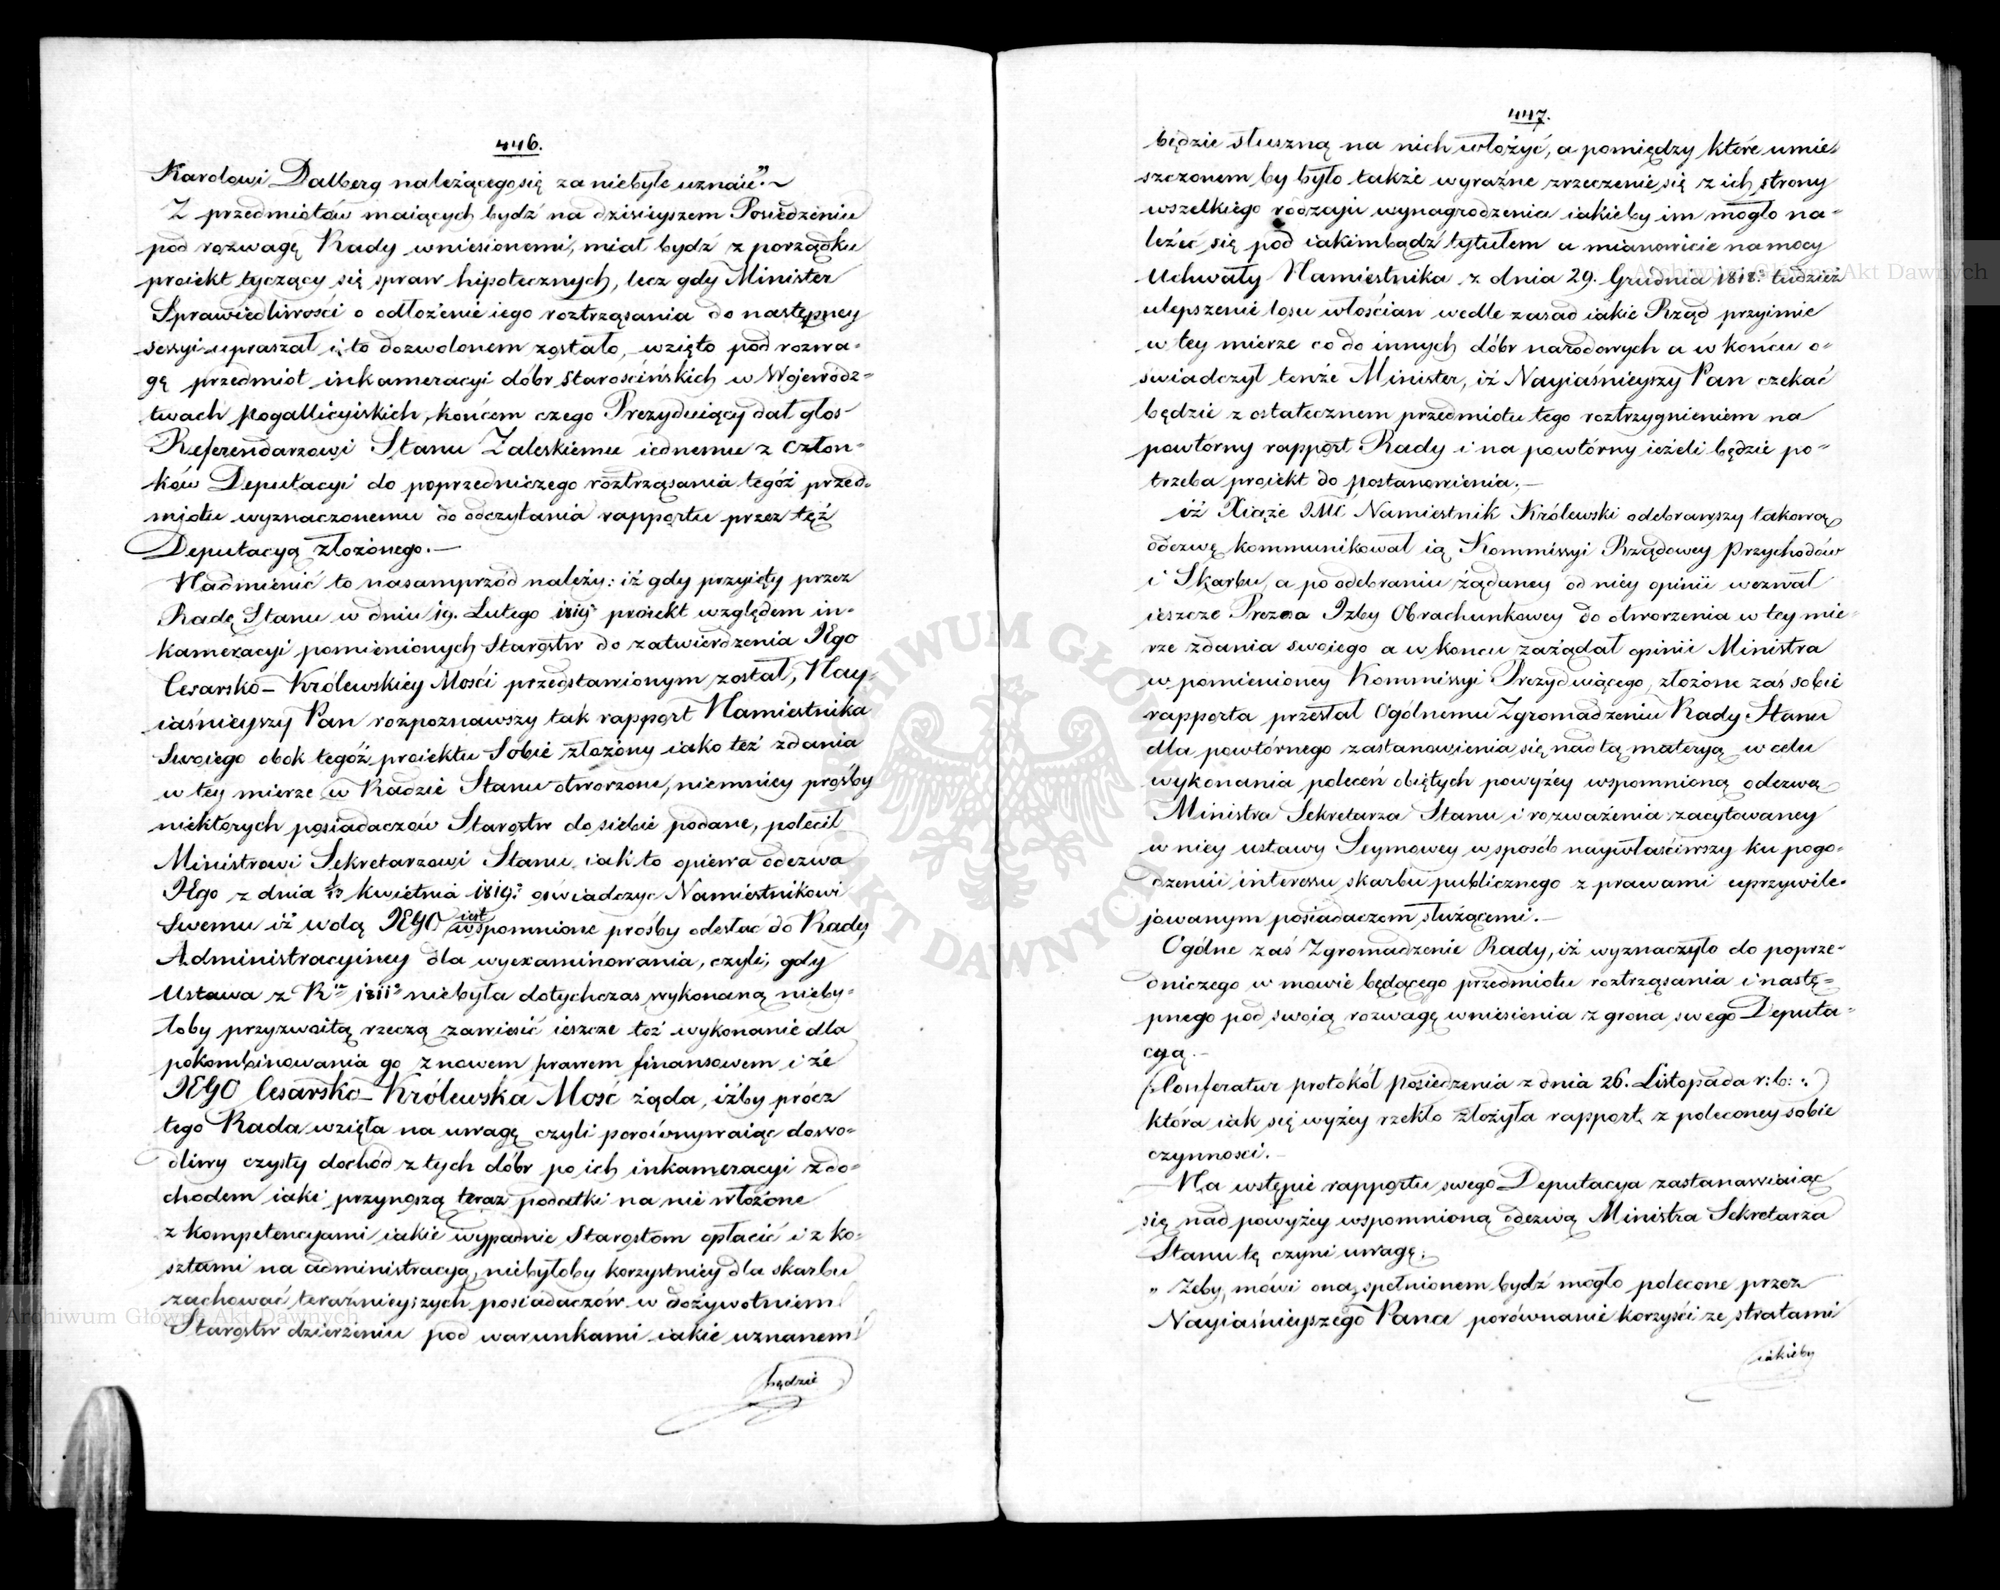 446.
Karolowi Dalberg należącego się za niebyłe uznaie".~
Z przedmiotów maiących bydź na dzisieyszem Posiedzeniu
pod rozwagę Rady wniesionemi, miał bydź z porządku
proiekt tyczący się spraw hipotecznych, lecz gdy Minister
Sprawiedliwości o odłożenie iego roztrząsania do następney
sessyi upraszał i to dozwolonem zostało, wzięto pod rozwa-
gę przedmiot inkameracyi dóbr starościńskich w Wojewódz-
twach pogallicyiskich, końcem czego Prezyduiący dał głos
Referendarzowi Stanu Zaleskiemu iednemu z człon-
ków Deputacyi do poprzedniczego roztrząsania tegóż przed-
miotu wyznaczonemu do odczytania rapportu przez też
Deputacyą złożonego.—
Nadmienić to nasamprzód należy: iż gdy przyięty przez
Radę Stanu w dniu 19. Lutego 1819 proiekt względem in-
kameracyi pomienionych Starostw do zatwierdzenia JEgo
Cesarsko-Królewskiey Mości przedstawionym został, Nay-
iaśnieyszy Pan rozpoznawszy tak rapport Namiestnika
Swoiego obok tegóż proiektu Sobie złożony iako też zdania
w tey mierze w Radzie Stanu otworzone, niemniey prośby
niektórych posiadaczów Starostw do siebie podane, polecił
Ministrowi Sekretarzowi Stanu, iak to opiewa odezwa
JEgo z dnia 1/13 kwietnia 1819. oświadczyć Namiestnikowi
Swemu iż wolą JEGO iest wspomnione prośby odesłać do Rady
Administracyiney dla wyexaminowania, czyli, gdy
Ustawa z R. 1811 niebyła dotychczas wykonaną nieby-
łoby przyzwoitą rzeczą zawiesić ieszcze toż wykonanie dla
pokombinowania go z nowem prawem finansowem i że
JEGO Cesarsko-Królewska Mość żąda, iżby prócz
tego Rada wzięła na uwagę czyli porównywaiąc dowo-
dliwy czysty dochód z tych dóbr po ich inkameracyi z do-
chodem iaki przynoszą teraz podatki na nie włożone
z kompetencyami iakie wypadnie Starostom opłacić i z ko-
sztami na administracyą, niebyłoby korzystniey dla skarbu
zachować teraźnieyszych posiadaczów w dożywotniem
Starostw dzierżeniu pod warunkami iakie uznanem
będzie
447.
będzie słuszną na nich włożyć, a pomiędzy które umie-
szczonem by było także wyraźne zrzeczenie się z ich strony
wszelkiego rodzaju wynagrodzenia iakieby im mogło na-
leżeć się pod iakimbądź tytułem a mianowicie na mocy
Uchwały Namiestnika z dnia 29. Grudnia 1818. tudzież
ulepszenie losu włościan wedle zasad iakie Rząd przyimie
w tey mierze co do innych dóbr narodowych a w końcu o-
świadczył tenże Minister, iż Nayiaśnieyszy Pan czekać
będzie z ostatecznem przedmiotu tego roztrzygnieniem na
powtórny rapport Rady i na powtórny ieżeli będzie po-
trzeba proiekt do postanowienia.—
iż Xiąże JMC Namiestnik Królewski odebrawszy takową
odezwę kommunikował ią Kommissyi Rządowey Przychodów
i Skarbu, a po odebraniu żądaney od niey opinii wezwał
ieszcze Preza Izby Obrachunkowey do otworzenia w tey mie-
rze zdania swoiego a w koncu zażądał opinii Ministra
w pomienioney Kommissyi Prezyduiącego, złożone zaś sobie
rapporta przesłał Ogólnemu Zgromadzeniu Rady Stanu
dla powtórnego zastanowienia się nad tą materyą w celu
wykonania poleceń obiętych powyżey wspomnioną odezwą
Ministra Sekretarza Stanu i rozważenia zacytowaney
w niey ustawy Seymowey w sposób naywłaściwszy ku pogo-
dzeniu interessu skarbu publicznego z prawami uprzywile-
jowanym posiadaczom służącemi.—
Ogólne zaś Zgromadzenie Rady, iż wyznaczyło do poprze-
dniczego w mowie będącego przedmiotu roztrząsania i nastę-
pnego pod swoią rozwagę wniesienia z grona swego Deputa-
cyą.—
(:Conferatur protokół posiedzenia z dnia 26. Listopada r: b: :)
która iak się wyżey rzekło złożyła rapport z poleconey sobie
czynności.—
Na wstępie rapportu swego Deputacya zastanawiaiąc
się nad powyżey wspomnioną odezwą Ministra Sekretarza
Stanu tę czyni uwagę:
„Żeby, mówi ona, spełnionem bydź mogło polecone przez
Nayiaśnieyszego Pana porównanie korzyści ze stratami
iakieby
Archiwum Główne Akt Dawnych
Archiwum Główne Akt Dawnych
ARCHIWUM GŁÓWNE AKT DAWNYCH